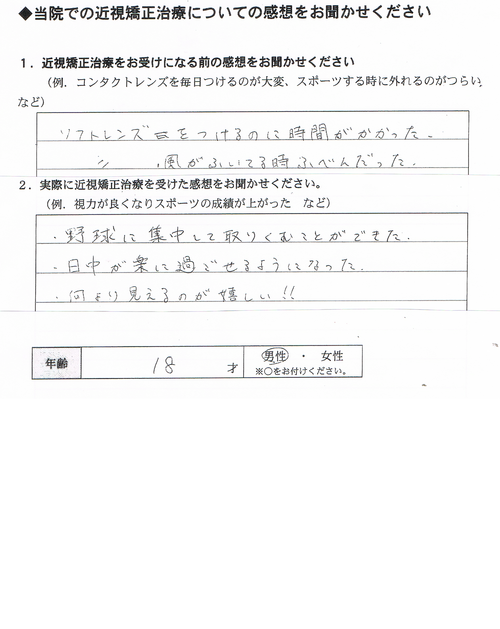 ◆当院での近視矯正治療についての感想をお聞かせください
1．近視矯正治療をお受けになる前の感想をお聞かせください
（例．コンタクトレンズを毎日つけるのが大変、スポーツする時に外れるのがつらい、
など）
ソフトレンズをつけるのに時間がかかった．
〃 ，風がふいてる時ふべんだった．
2．実際に近視矯正治療を受けた感想をお聞かせください。
（例．視力が良くなりスポーツの成績が上がった　など）
・野球に集中して取りくむことができた．
・日中が楽に過ごせるようになった．
・何より見えるのが嬉しい!!
年齢 18 才 男性 ・ 女性
※○をお付けください。